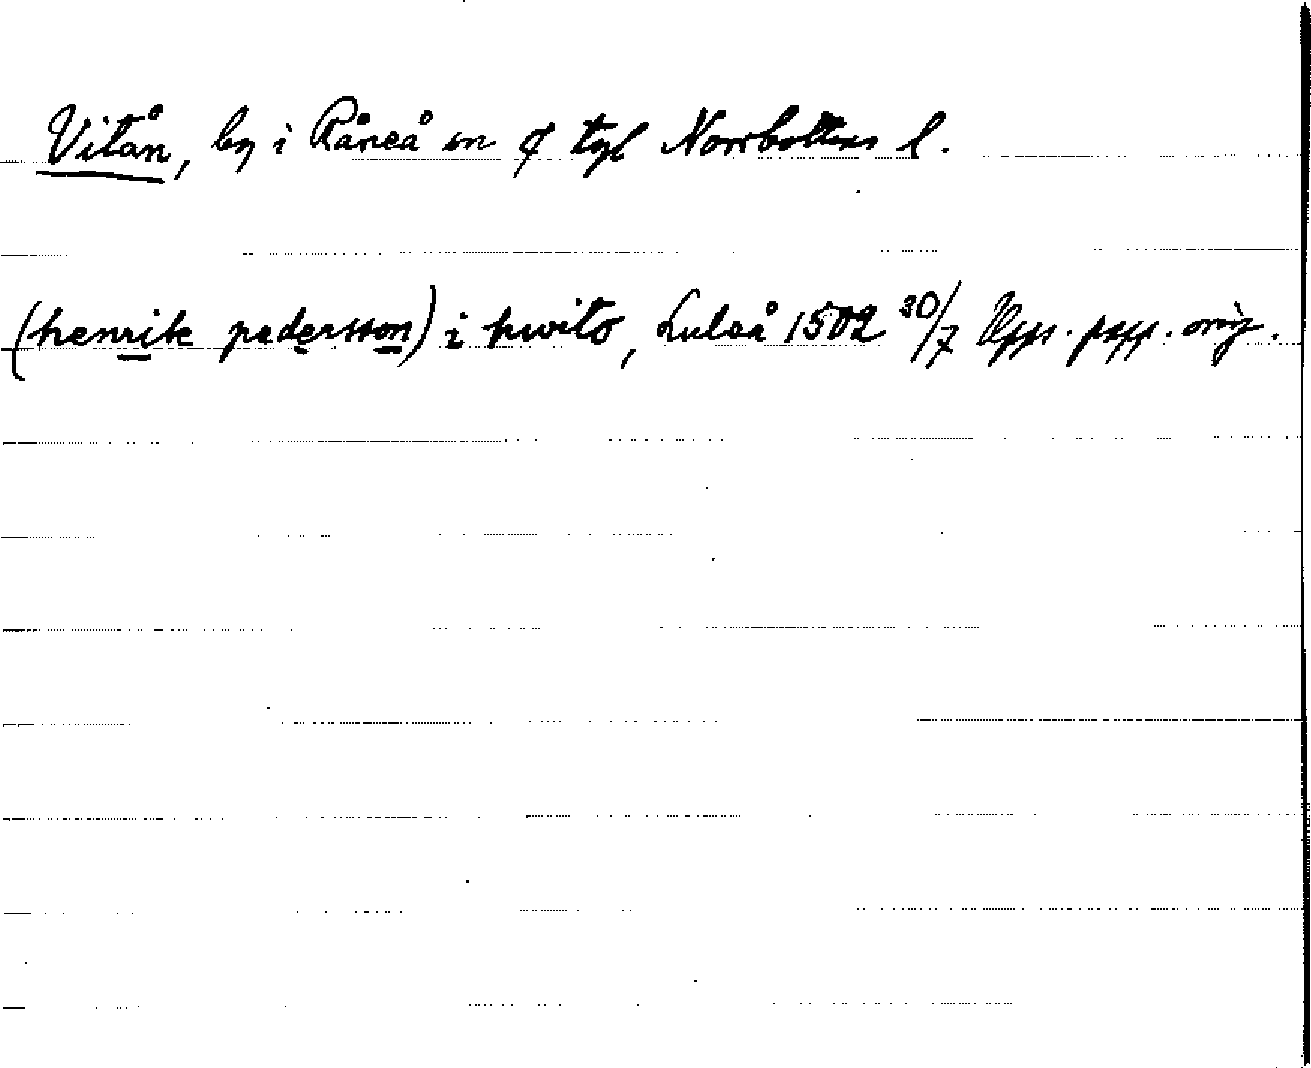 Vitån, by i Råneå sn ⌀ tgl Norrbottens l.
(henrik pedersson) i hwito, Luleå 1502 30/7 Upps. papp. orig.